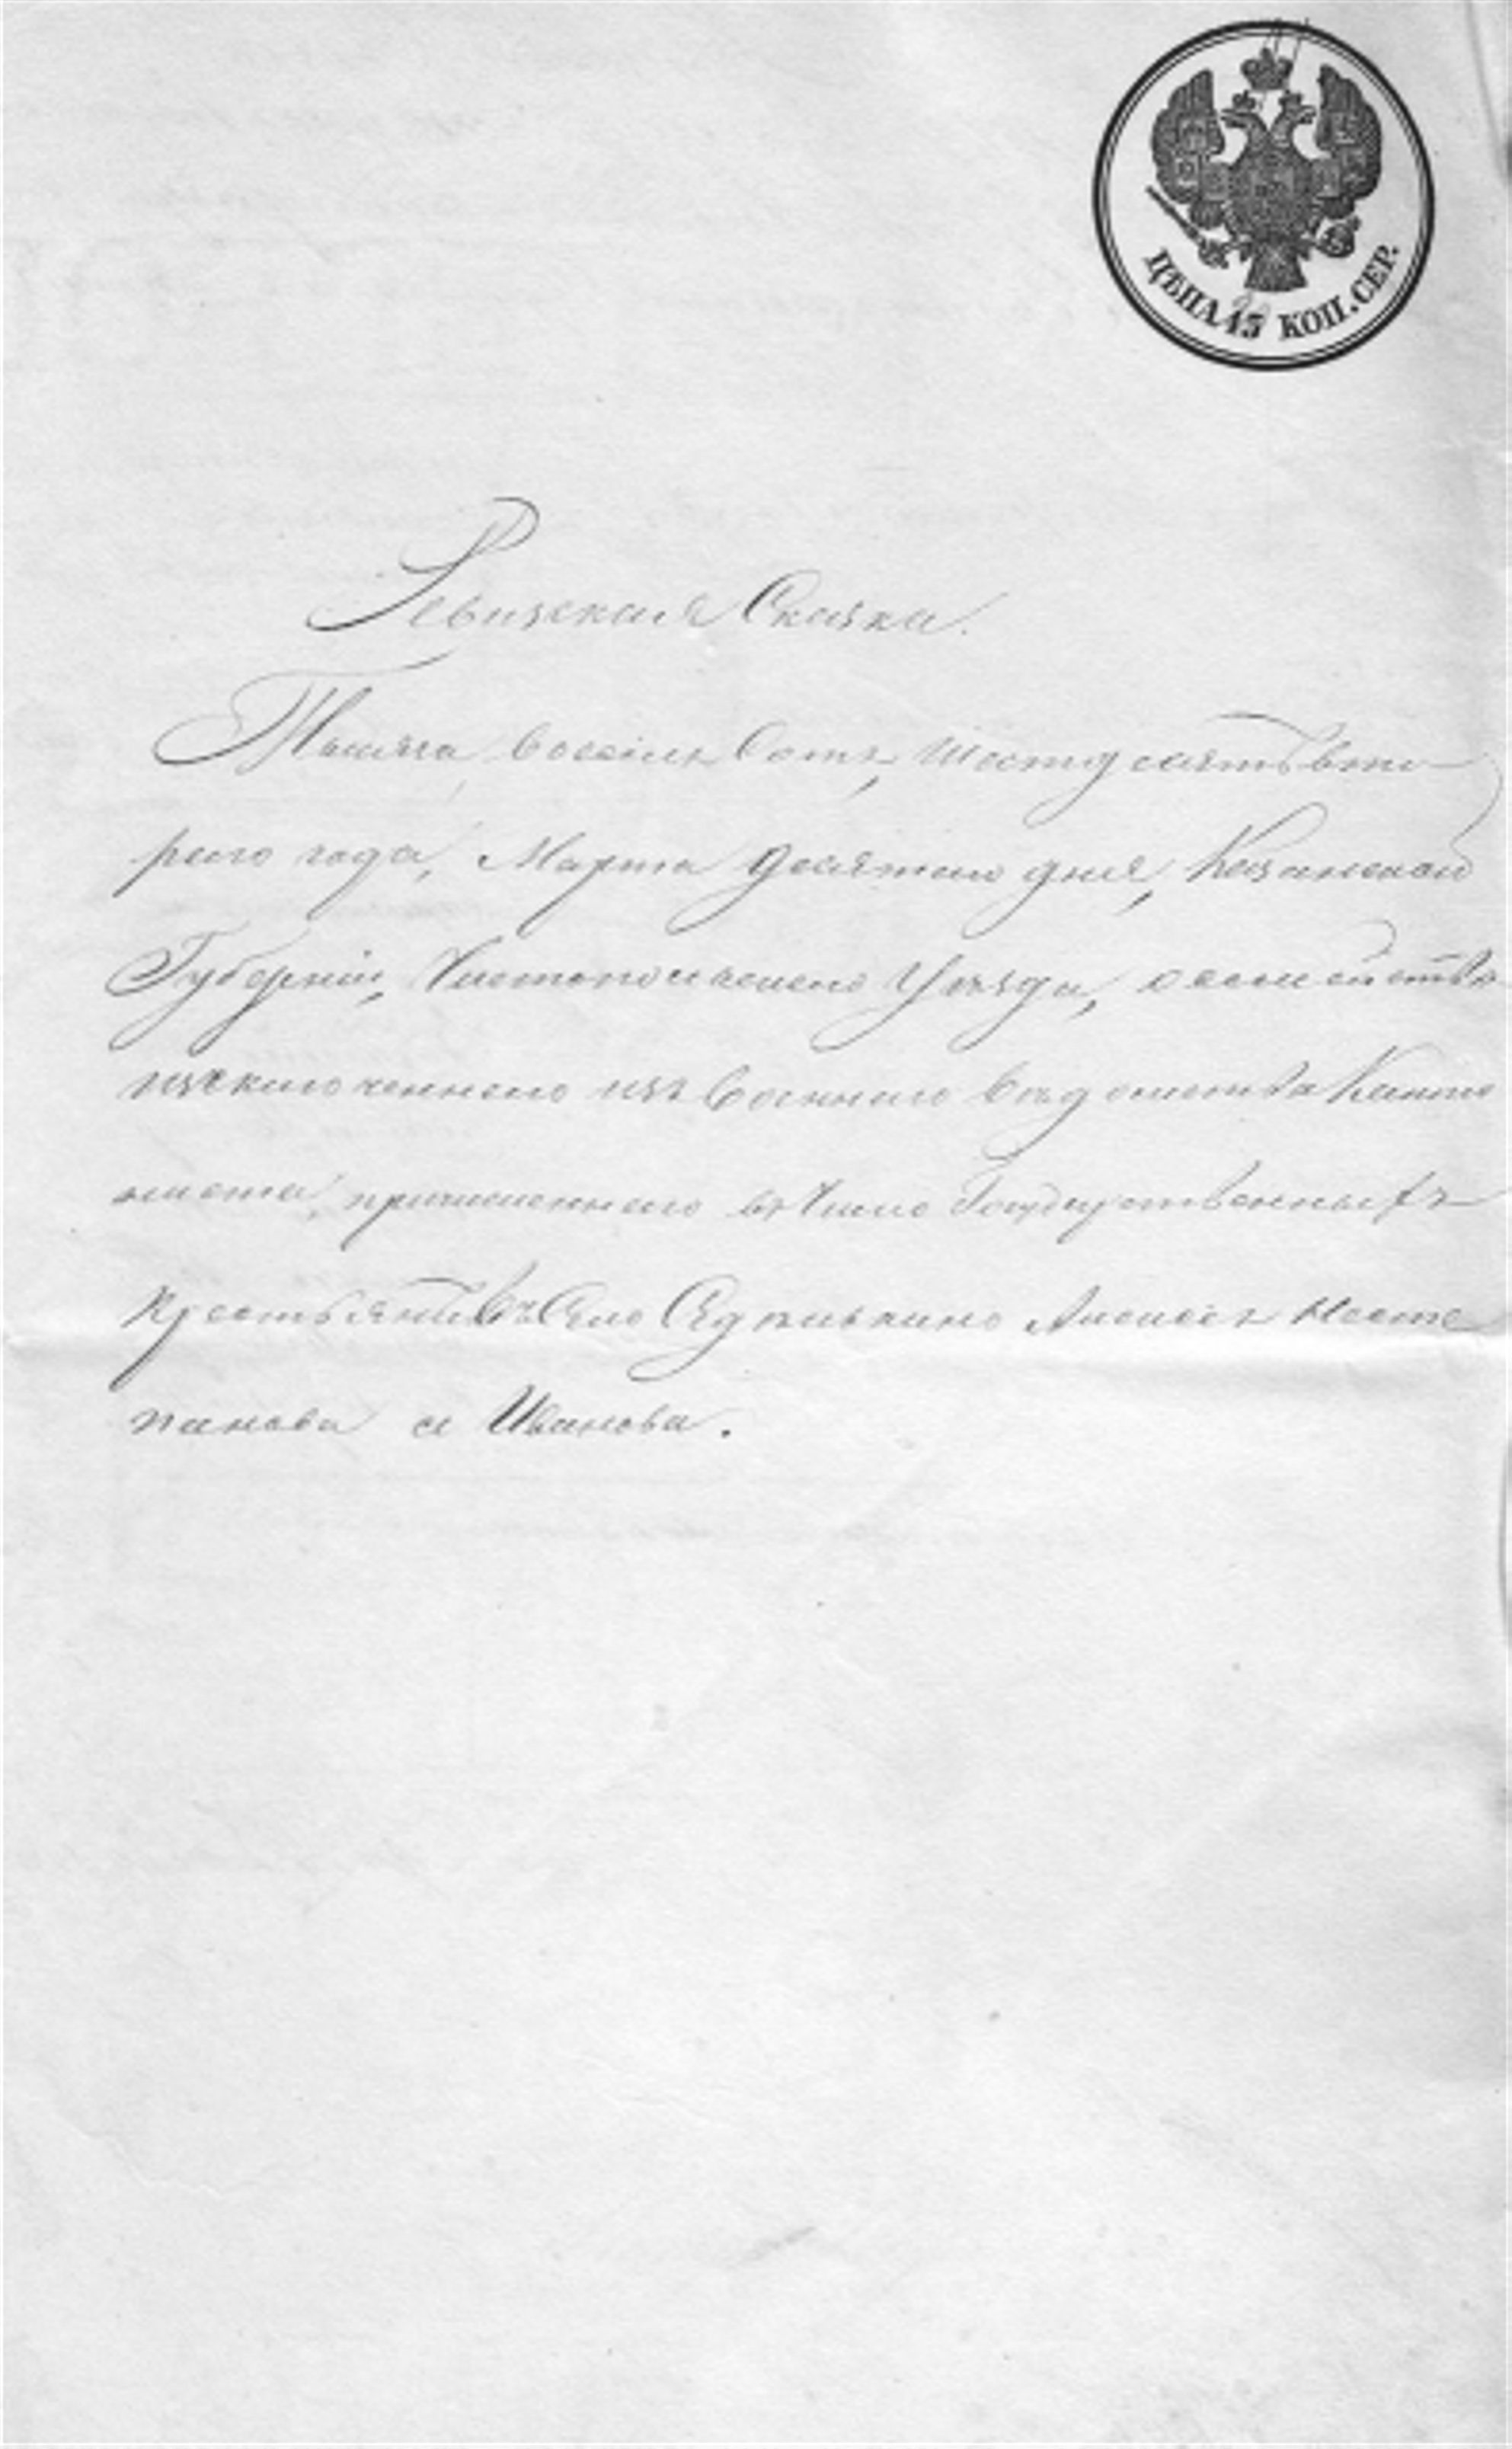 ЦѢНА 15 КОП. СЕР.
Ревизская Сказка.
Тысяча восемь сотъ, шестьдесятъ вто-
рого года, Марта десятаго дня, Казанской
Губерніи, Чистопольскаго Уѣзда, о семействѣ
изключеннаго изъ Военнаго вѣдомства Кантo
ниста, причисленнаго въ число Государственныхъ
крестьянъ въ Село
панова а Иванова.